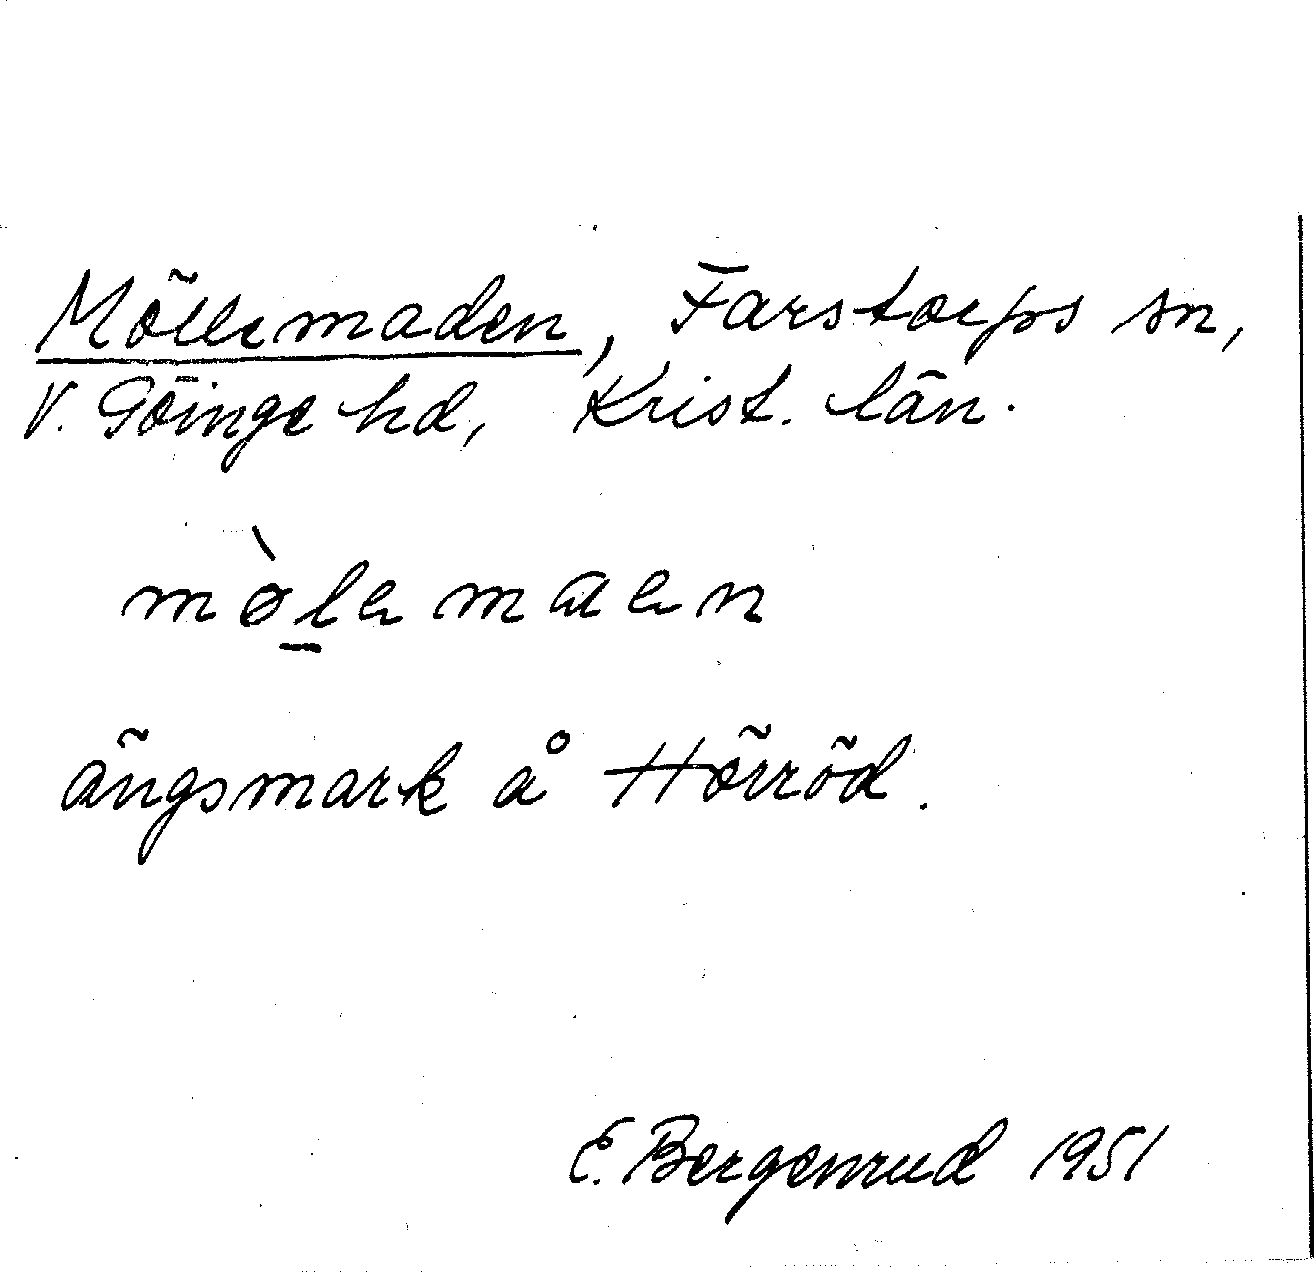 Möllemaden, Farstorps sn,
V. Göinge hd, Krist. län.
mø̀l̠emaen
ängsmark å Hörröd.
E. Bergenrud 1951